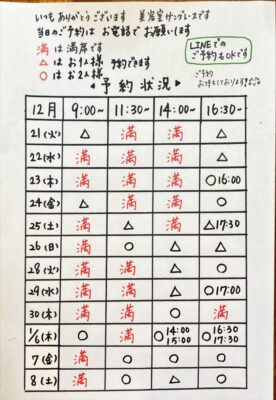 いつも ありがとうございます 美容室サンプレスです
当日のご予約は お電話で お願いします
満 は 満席です
△ は お1人様 予約できます
○ は お2人様
LINEでの
ご予約もOKです
ご予約
お待ちしております
・予約状況・
12月 9:00~ 11:30~ 14:00~ 16:30~
21(火) △ 満 満 △
22(水) 満 満 満 △
23(木) 満 満 満 ○16:00
24(金) △ 満 満 △
25(土) 満 △ 満 △17:30
26(日) 満 ○ △ △
28(火) 満 満 △ △
29(水) 満 満 △ ○17:00
30(木) 満 ○ ○ 満
1/6(木) ○ 満 ○14:00 15:00 ○16:30 17:30
7(金) 満 ○ ○ ○
8(土) 満 ○ △ ○